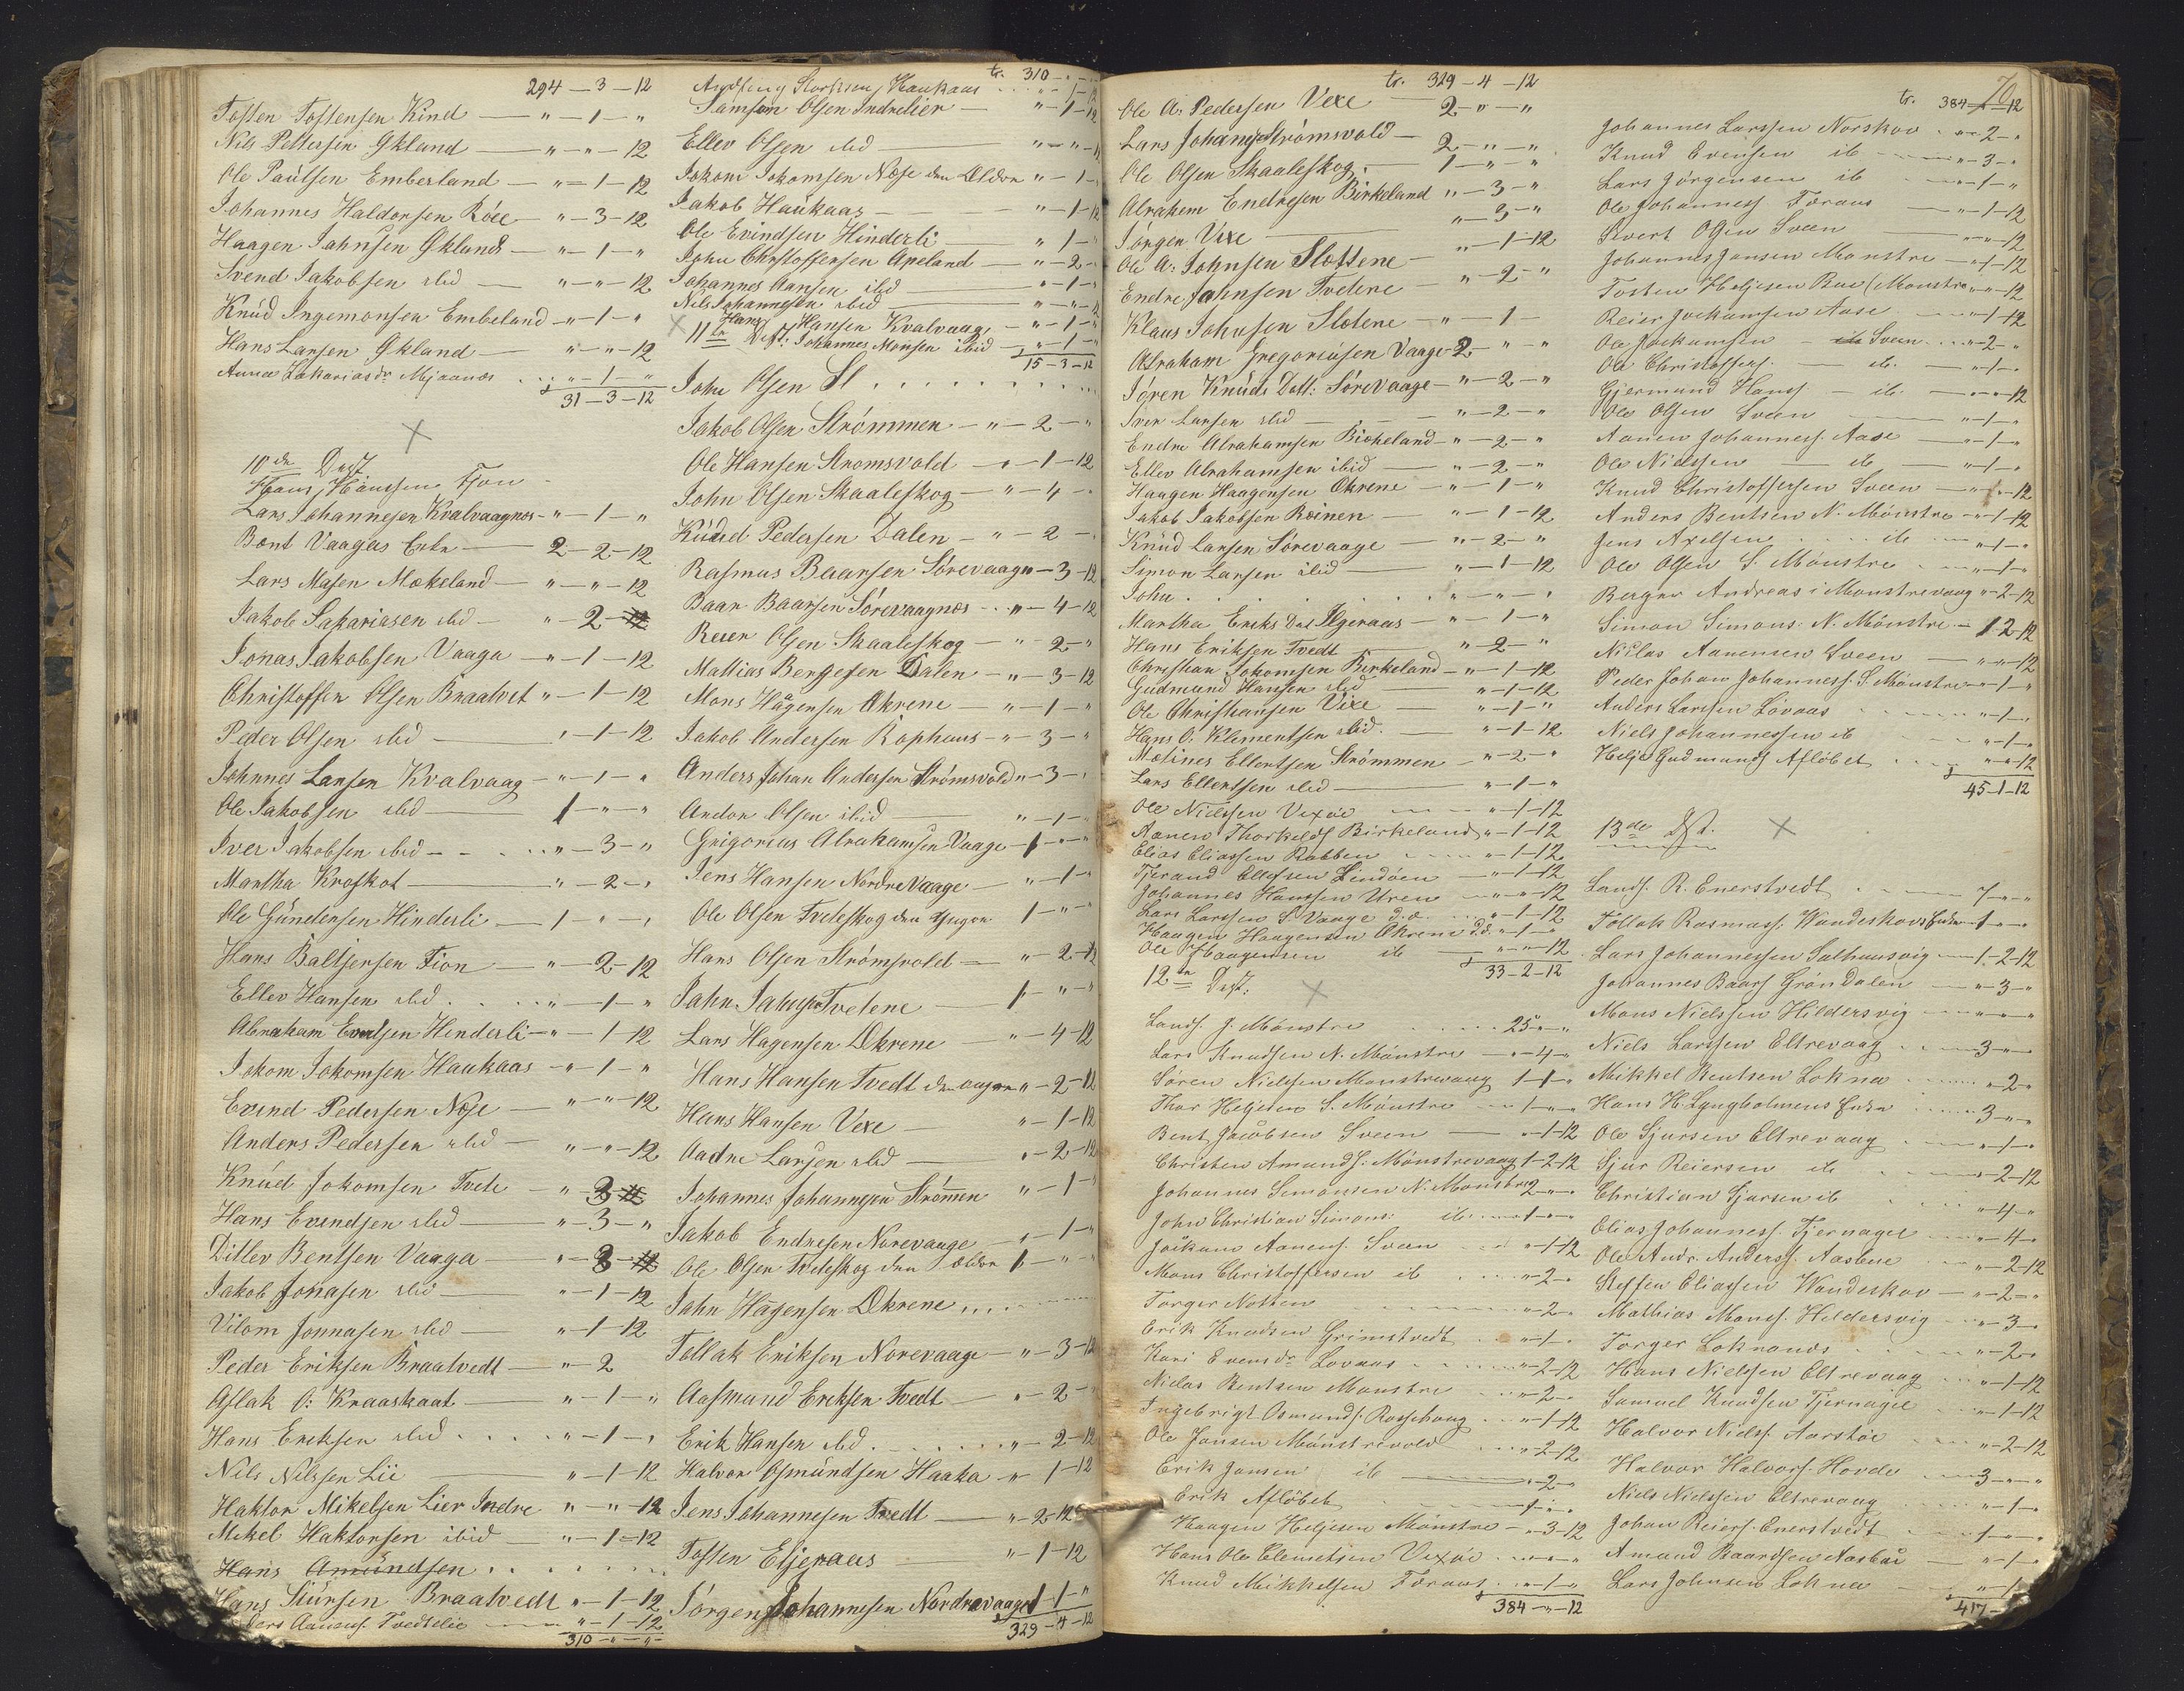 294 – 3 – 12
Tosten Tostensen Kind — " – 1 – "
Nils Pettersen Økland — " – " – 12
Ole Paulsen Emberland — " – 1 – 12
Johannes Haldorsen Röee — " – 3 – 12
Haagen Jahnsen Øklands — " – 1 – "
Svend Jakobsen ibid — " – " – 12
Knud Ingemonsen Embeland – " – 1 – "
Hans Larsen Økland — " – " – 12
Anna Zakariasdr Mjaanæs . . . " – 1 – "
31 – 3 – 12
10de Dist
Hans Hanssen Fjon
Lars Johannesen Kvalvaagnæs – " – 1 – "
Bent Vaagas Enke — 2 – 2 – 12
Lars Masen Mækeland — " – " – 12
Jakob Sakariasen ibid — " – 2 – 12
Jonas Jakobsen Vaaga — " – 1 – 12
Christoffer Olsen Braatvet " – 1 – 12
Peder Olsen ibid — " – 1 – 12
Johnnes Larsen Kvalvaag – " – 1 – "
Ole Jakobsen ibid — 1 – " – "
Iver Jakobsen ibid – – . . " – 3 – "
Martha Kroskot — " – 2 – "
Ole Gundersen Hinderli — 1 – " – "
Hans Baltsersen Fion — " – 2 – 12
Ellev Hansen ibid . . . . " – 1 – "
Abraham Evensen Henderli – " – 1 – 12
Jokom Jokomsen Haukaas – " – 1 – "
Evend Pedersen Næse — " – " – 12
Anders Pedersen ibid — " – " – 12
Knud Jokomsen Tvete — " 3 – 12
Hans Evendsen ibid — " – 3 – "
Ditlev Bentsen Vaaga — " – 3 – 12
Jakob Jonasen ibid — " – 1 – 12
Vilom Jonnasen ibid — " – 1 – 12
Peder Eriksen Braatvedt — " – 2
Aslak O: Kraaskaat — " – 1 – "
Hans Ereksen ibid . . . . " – 1 – "
Nils Nilssen Lie — " – 1 – 12
Haktor Mikelsen Lier Indre " – " – 12
Mekel Haktorsen ibid — " – 1 – 12
Hans Amundsen . . . . . .
Hans Siursen Braatvedt " – 1 – 12
Aanens. Tvedtelie — " – 1 – 12
310 – " – "
tr. 310
Storksen Haukaas . . . " – 1 – 12
Samson Olsen Indrelier — " – 1 – 12
Ellev Olsen ibid — " – " – 12
Jokom Jokomsen Næse den Ældre " – 1 –
Jakob Haukaas — " – 1 – 12
Ole Evindsen Hinderli — " 1 – "
John Christoffersen Apeland — " – 2 –
Johannes Hansen ibid — " – 1 –
Nils Johannesen ibid — " – " – 12
Hans Hansen Kvalvaag – " – 1 – "
11te Dist: Johannes Monsen ibid — " – 1 – "
15 – 3 – 12
John Olsen Sl . . . . . . . .
Jakob Olsen Strömmen – " – 2 – "
Ole Hansen Stromsvold — " – 1 – 12
John Olsen Skaaleskog — " – 4 –
Knud Pedersen Dalen – " – 2 –
Rasmus Baarsen Sörevaagn – 3 – 12
Baar Baarsen Sörevaagnæs . . " – 4 – 12
Reier Olsen Skaaleskog — " – 2 – "
Mathias Bergesen Dalen – " – 3 – 12
Mons Hågensen Økrene — " – 1 – "
Jakob Andersen Röphuus – " – 3 – "
Anders Johan Andersen Strömsvold " – 3 –
Andor Olsen ibid — " – 1 –
Grigorius Abrahamsen Vaage – 1 – " – "
Jens Hansen Nordre Vaage — " – 1 – "
Ole Olsen Tveteskog den Yngre 1 – " – "
Hans Olsen Strömsvold — " – 2 – 12
Jahn Jahnsen Tvetene — 1 – " – "
Lars Hagensen Økrene — " – 4 – 12
Hans Hansen Tvedt den yngre " – 2 – 12
Hans Hansen Vexe — " – 1 – 12
Aadne Larsen ibid — " – 2 – 12
Johannes Johannesen Strömen " – 1 – "
Jakob Endresen Norevaage — " – 1 – "
Ole Olsen Tveteskog den ældre 1 – " – "
Jahn Hågensen Økrene . . . .
Tollak Eriksen Norevaage — " – 3 – 12
Aasmund Ereksen Tvedt — " – 2 –
Erik Hansen ibid . . . . . " – 2 – 12
Halvor Osmundsen Haaka – " 1 – 12
Jens Johannesen Tvedt — " – 2 – 12
Tosten Eljeraas — " – 1 – 12
Jörgen Johannesen Nordrevaage 1 1 – "
329 – 4 – 12
tr. 329 – 4 – 12
Ole A. Pedersen Vexe — 2 – " – "
Lars Johans Strömsvold — 2 – " – "
Ole Olsen Skaaleskog . — 1 – " – "
Abraham Endresen Birkeland " – 3 – "
Jörgen Vixe — " – 3 – "
Ole A: Johnsen Slottene — " – 1 – 12
Endre Johnsen Tvetene — " – 2 – "
Klaus Johnsen Slotene — " – 1 –
Abraham Gregoriusen Vaage – 2 – " – "
Sören Knuds Datt: Sörevaage – " – 2 – "
Iver Larsen ibid — " – 2 – "
Endre Abrahamsen Birkeland – " – 2 – "
Ellev Abrahamsen ibid — " – 2 – "
Haagen Haagensen Økrene — " – 1 – "
Jakob Jakobsen Roinen — " – 1 – 12
Knud Larsen Sörevaage — " – 2 – "
Simon Larsen ibid — " – 1 – 12
John . . . . . . . " – " – "
Martha Eriks Dat Elgeraas — " – 1 – "
Hans Eriksen Tvedt — " – 2 – "
Christian Jokomsen Birkeland – " – 1 – 12
Gudmund Hansen ibid — " – 1 – 12
Ole Christiansen Vixe — " – 1 – "
Hans O: Klementsen ibid. — " – 1 – 12
Molines Ellertsen Strömmen – " – 2 – "
Lars Ellertsen ibid — " – 1 – "
Ole Nielssen Vexöe — " – 1 – 12
Aanen Thorkelds Birkeland " – 1 – 12
Elias Eliassen Robben . . . " – 1 – 12
Tjerand Ellefsen Lindöen — " – 1 – 12
Johannes Hanssen Uren — " – " – 12
Lars Larssen S. Vaage d. æ. — " – 1 – 12
Haagen Haagensen Økrene d.æ. " – 1 – "
Ole Haagensen ib — " – " – 12
33 – 2 – 12
12te Dist:
Lands. J. Mönstre . . . 25 – " – "
Lars Knudsen N. Mönstre — " – 4 – "
Sören Nielssen Monstrevaag 1 – 1 – "
Thor Heljesen S. Mönstre — 1 – " – "
Bent Jacobsen Sveen — " – 1 – 12
Christen Amunds: Mönstrevaag 1 – 2 – 12
Johannes Simonsen N. Monstre 2 – " – "
John Christian Simons: ib. — 1 – " – "
Jochum Aanens. Sveen — " – 1 – 12
Mons Christoffersen ib . . . " – 2 – "
Torger Notten — " – 2 – "
Erik Knudsen Grimstvedt . . " – 1 – "
Kari Evensdr Lovaas . . . " – 2 – 12
Niclas Bentsen Monstre . . . " – 2 – "
Ingebrigt Osmunds. Rosshoug . . " – 1 – 12
Ole Jansen Mönstrevold . . " – 2 – 12
Erik Jansen ib — " – 2 – "
Erik Aflöbet — 1 – " – "
Haagen Heljesen Mönstre – " – 3 – 12
Hans Ole Clemetsen Vexöe . . . " – " – "
Knud Mikkelsen Foraas . . " – 1 – "
384 – " – 12
76
tr. 384 – " – 12
Johannes Larssen Norskov . " – 2 – "
Knud Evensen ib — " – 3 – "
Lars Jörgensen ib — " – 1 – "
Ole Johanness Foraas — " – 1 – 12
Sivert Olsen Sveen — " – " – 12
Johannes Jansen Monstre — " – 1 – 12
Tosten Heljesen Rue (Monstre " – " – 12
Reier Jochumsen Aase — " – 1 – 12
Ole Jochumsen – ib Sveen . . " – 2 – "
Ole Christoffers. — ib. — " – 1 – "
Gjermund Hanss — ib. — " – " – 12
Ole Olsen Sveen — " – 1 – "
Aanen Johanness. Aase — " – 1 – "
Ole Nielssen — ib — " – 1 – "
Knud Christoffersen Sveen — " – 1 – 12
Anders Bentsen N. Mönstre – " – 1 – 12
Jens Axelsen . . . . ib — " – 1 – "
Ole Olsen S. Mönstre . . — " – 1 – "
Berger Andreas i Monstrevaag " – 2 – 12
Simon Simons: N. Mönstre. – 1 – 2 – 12
Niclas Aanensen Sveen — " – " – 12
Peder Johan Johanness. S. Mönstre – " – 1 – "
Anders Larssen Lövaas . . . . " – 1 – "
Niels Johannessen ib — " – 1 – "
Helje Gudmunds Aflöbet . . . " – " – 12
45 – 1 – 12
13de Dst.
Lands. R. Enerstvedt . . . 7 – " – "
Tollak Rasmuss. Wandeskovs Enke 1 – " – "
Lars Johannessen Salhuusvig – 1 – 2 – 12
Johannes Baars Gröndalen — " – 3 – "
Mons Nielssen Hildersvig — " – " – "
Niels Larssen Eltrevaag . . . 3 – " – "
Mikkel Bentsen Lokna — " – 2 – "
Hans H. Lyngholmens Enke . . . 3 – " – "
Ole Sjursen Eltrevaag . . . " – 1 – "
Sjur Reiersen ib . . . " – 2 – 12
Christian Sjursen ib . . . " – 4 – "
Elias Johanness. Tjernagel — " – 4 – "
Ole Andr. Anderss. Aasbue . . . " – 2 – 12
Steffen Eliassen Wandeskov — " – 2 – "
Mathias Monss. Hildersvig . . . " – 3 – "
Torger Loknands . . . " – 2 – "
Hans Nielssen Eltrevaag . . . " – 1 – 12
Samuel Knudsen Tjernagel . . . " – 1 – 12
Halvor Nielss. Aarstöe . . . " – 2 – 12
Halvor Halvors. Hovde . . . 3 – " – "
Niels Nielssen Eltrevaag . . . " – 1 – "
Johan Reiers. Enerstvedt . . . 1 – " – "
Amund Baardsen Aasbue — " – 1 – "
Lars Johnsen Lokna — " – 1 – "
417 –